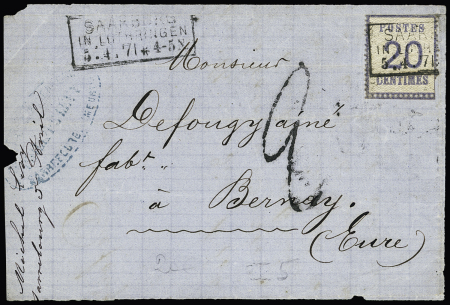 SAARBURG
IN LOTHRINGEN
5.4.71 * 4-5N
POSTES
20
CENTIMES
SAARB
71
Monsieur
2
Defougy aîné
fabt
à Bernay
(Eure)
Michel
Sarrebourg 5 Avril